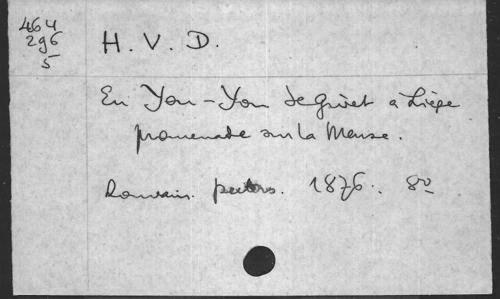 464
296
5
H. V. D.
En You-You de Givet à Liège
promenade sur la Meuse.
Louvain. Peeters. 1876. 8º